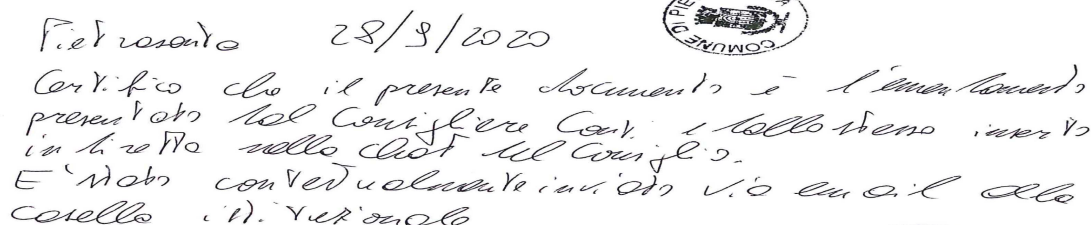 Pietrasanta 28/9/2020
COMUNE DI PIE
Certifico che il presente documento è l'emendamento
presentato dal Consigliere Conti e dallo stesso inserito
in diretta nella chat del Consiglio.
E' stato contestualmente inviato via email alla
casella istituzionale